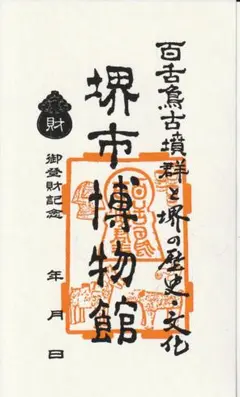 百舌鳥古墳群と堺の歴史・文化
堺市博物館
財
御登財記念
年 月 日